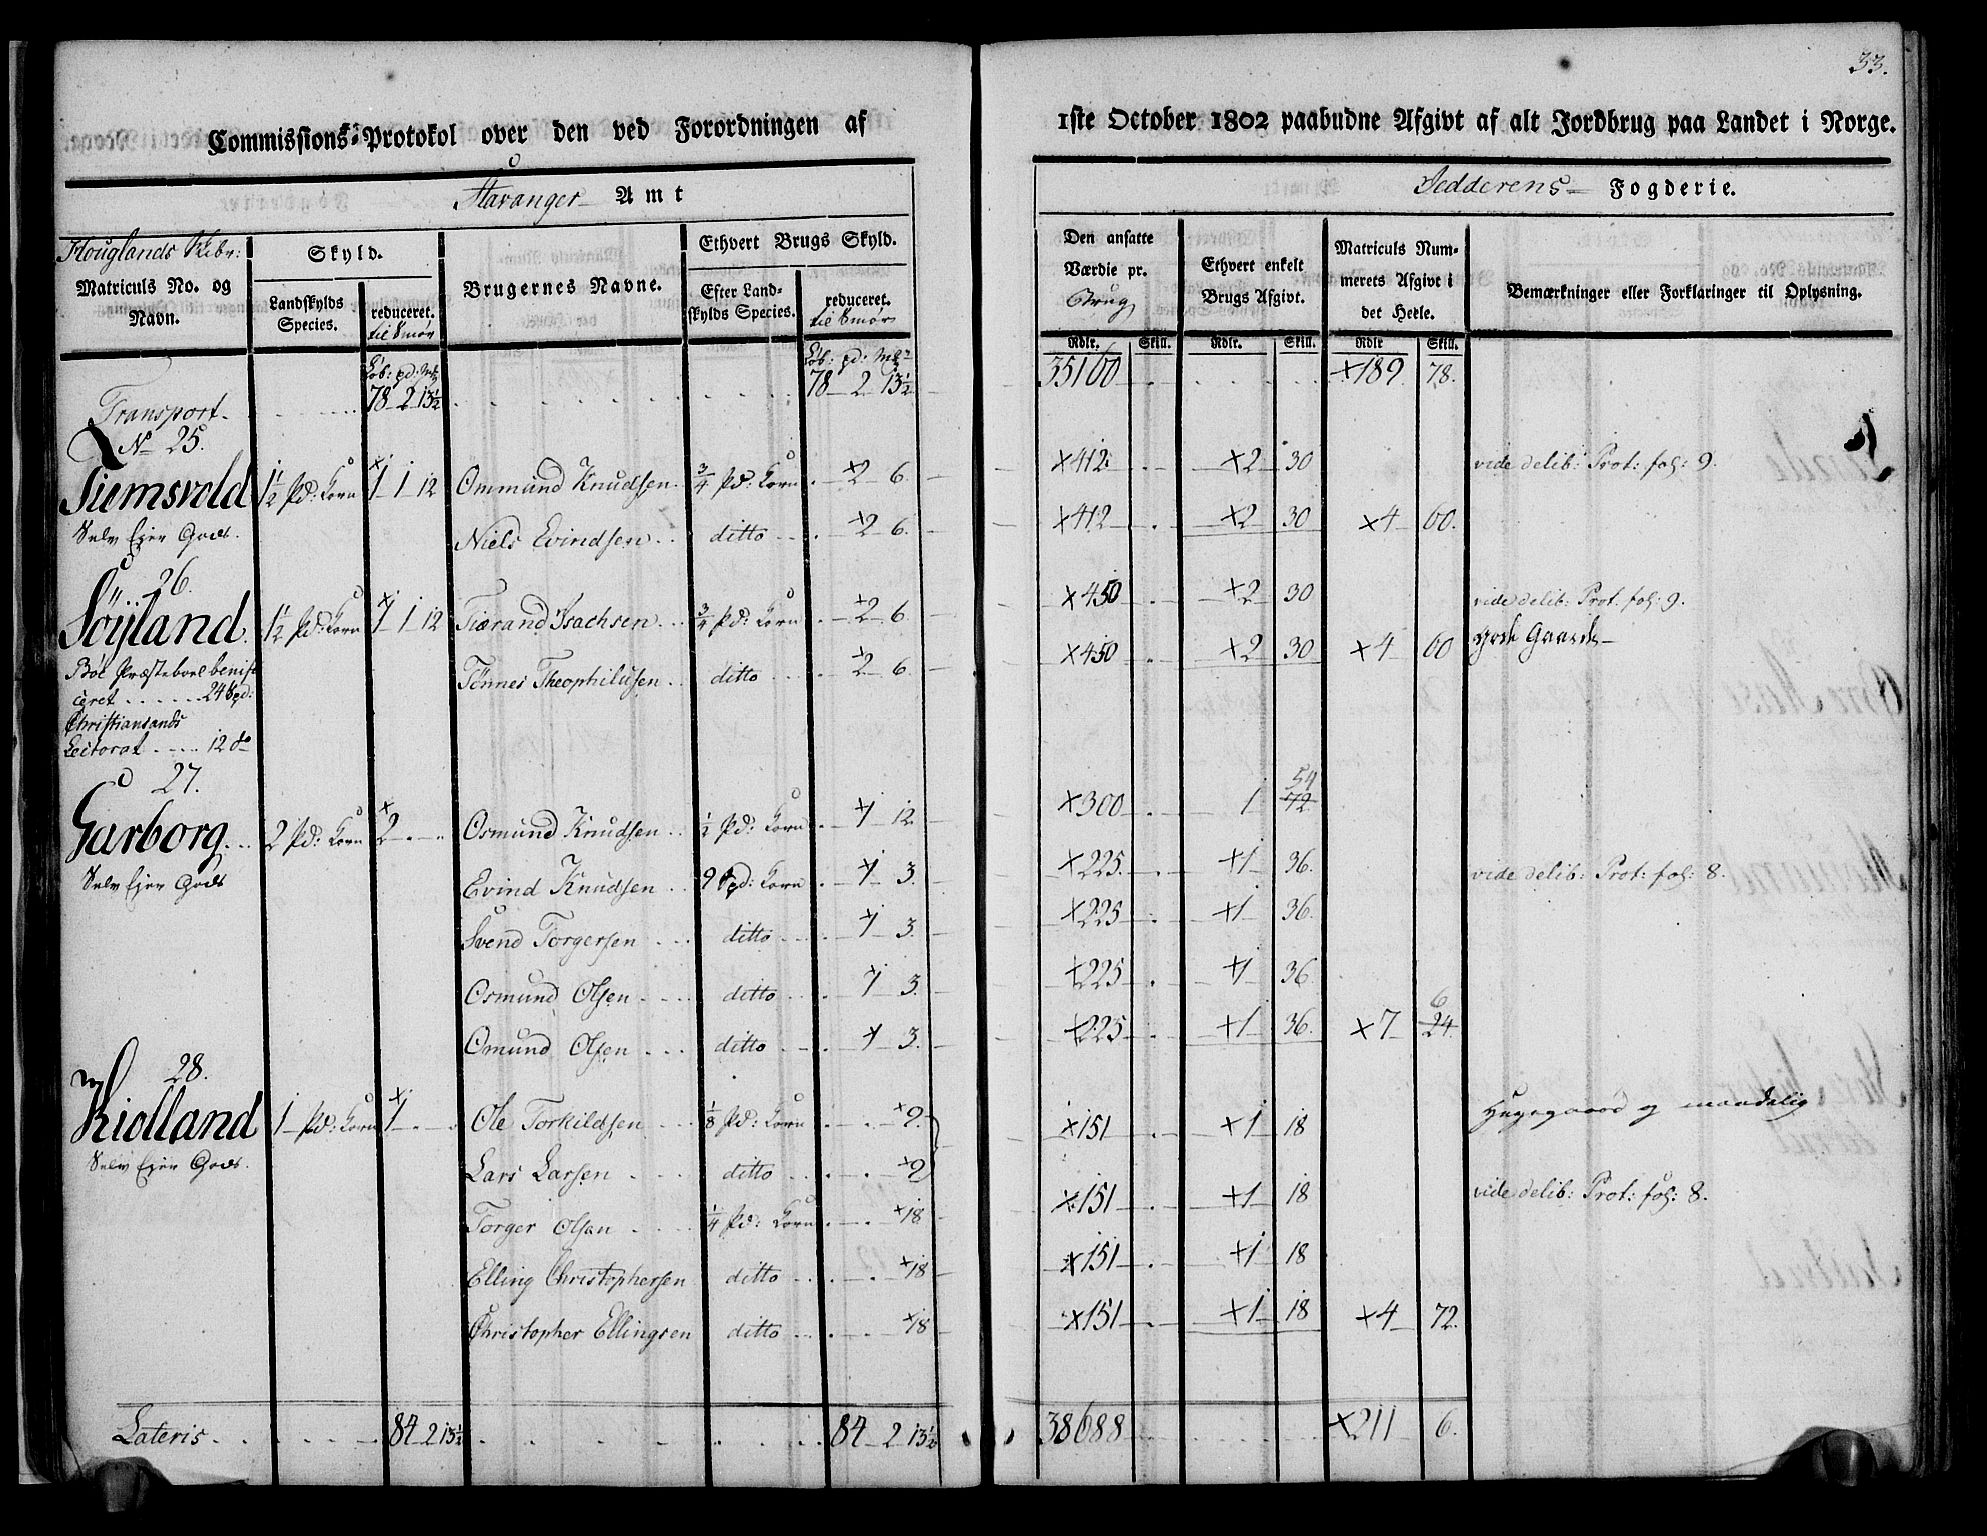 33.
Commissions-Protokol over den ved Forordningen af 1ste October 1802 paabudne Afgivt af alt Jordbrug paa Landet i Norge.
Stavanger Amt
Jedderens Fogderie.
Houglands Skibr:
Matriculs No. og Navn.
Skyld.
Landskylds Species.
reduceret. til Smør
Brugernes Navne.
Ethvert Brugs Skyld.
Efter Landskylds Species.
reduceret. til Smør
Den ansatte Værdie pr. Brug
Ethvert enkelt Brugs Afgivt.
Matriculs Nummerets Afgivt i det Heele.
Bemærkninger eller Forklaringer til Oplysning.
Rdlr. Skill. Rdlr. Skill. Rdlr Skill.
Transport. 78 2 13½ 78 2 13½ 35160 ×189 78.
No 25.
Tiemsvold 1½ Pd: Korn 1 1 12 Ommund Knudsen ¾ Pd: Korn 2 6. ×412 ×2 30 vide delib: Prot: fol: 9.
Selv Ejer Gods. Niels Evindsen ditto 2 6. ×412 ×2 30 ×4 60.
26.
Söÿland 1½ Pd: Korn 1 1 12 Tiærand Isachsen ¾ Pd: Korn 2 6 ×450 ×2 30 vide delib: Prot. fol: 9.
Tönnes Theophilusen ditto 2 6 ×450 ×2 30 ×4 60 gode Gaarde
Böe Præstebord benificeret 24 Spd:
Christiansands
Lectorat 12 do
27.
Garborg 2 Pd: Korn 2 Osmund Knudsen ½ Pd: Korn 1 12 ×300 1 72 54
Selv Ejer Gods Evind Knudsen 9 Spd: Korn 1 3. ×225 ×1 36. vide delib: Prot: fol: 8.
Svend Torgersen ditto 1 3. ×225 ×1 36.
Osmund Olsen ditto 1 3. ×225 ×1 36
Omund Olsen ditto 1 3. ×225 ×1 36. ×7 24. 6
28.
Kiolland 1 Pd: Korn 1 Ole Torkildsen ⅛ Pd: Korn 9. ×151 ×1 18 og maadelig
Selv Ejer Gods. Lars Larsen ditto 9
Torger Olsen ¼ Pd: Korn 18 ×151 ×1 18 vide delib: Prot: fol: 8.
Elling Christophersen ditto 18 ×151 ×1 18
Christopher Ellingsen ditto 18 ×151 ×1 18 ×4 72.
Lateris 84 2 13½ 84 2 13½ 38688 ×211 6.